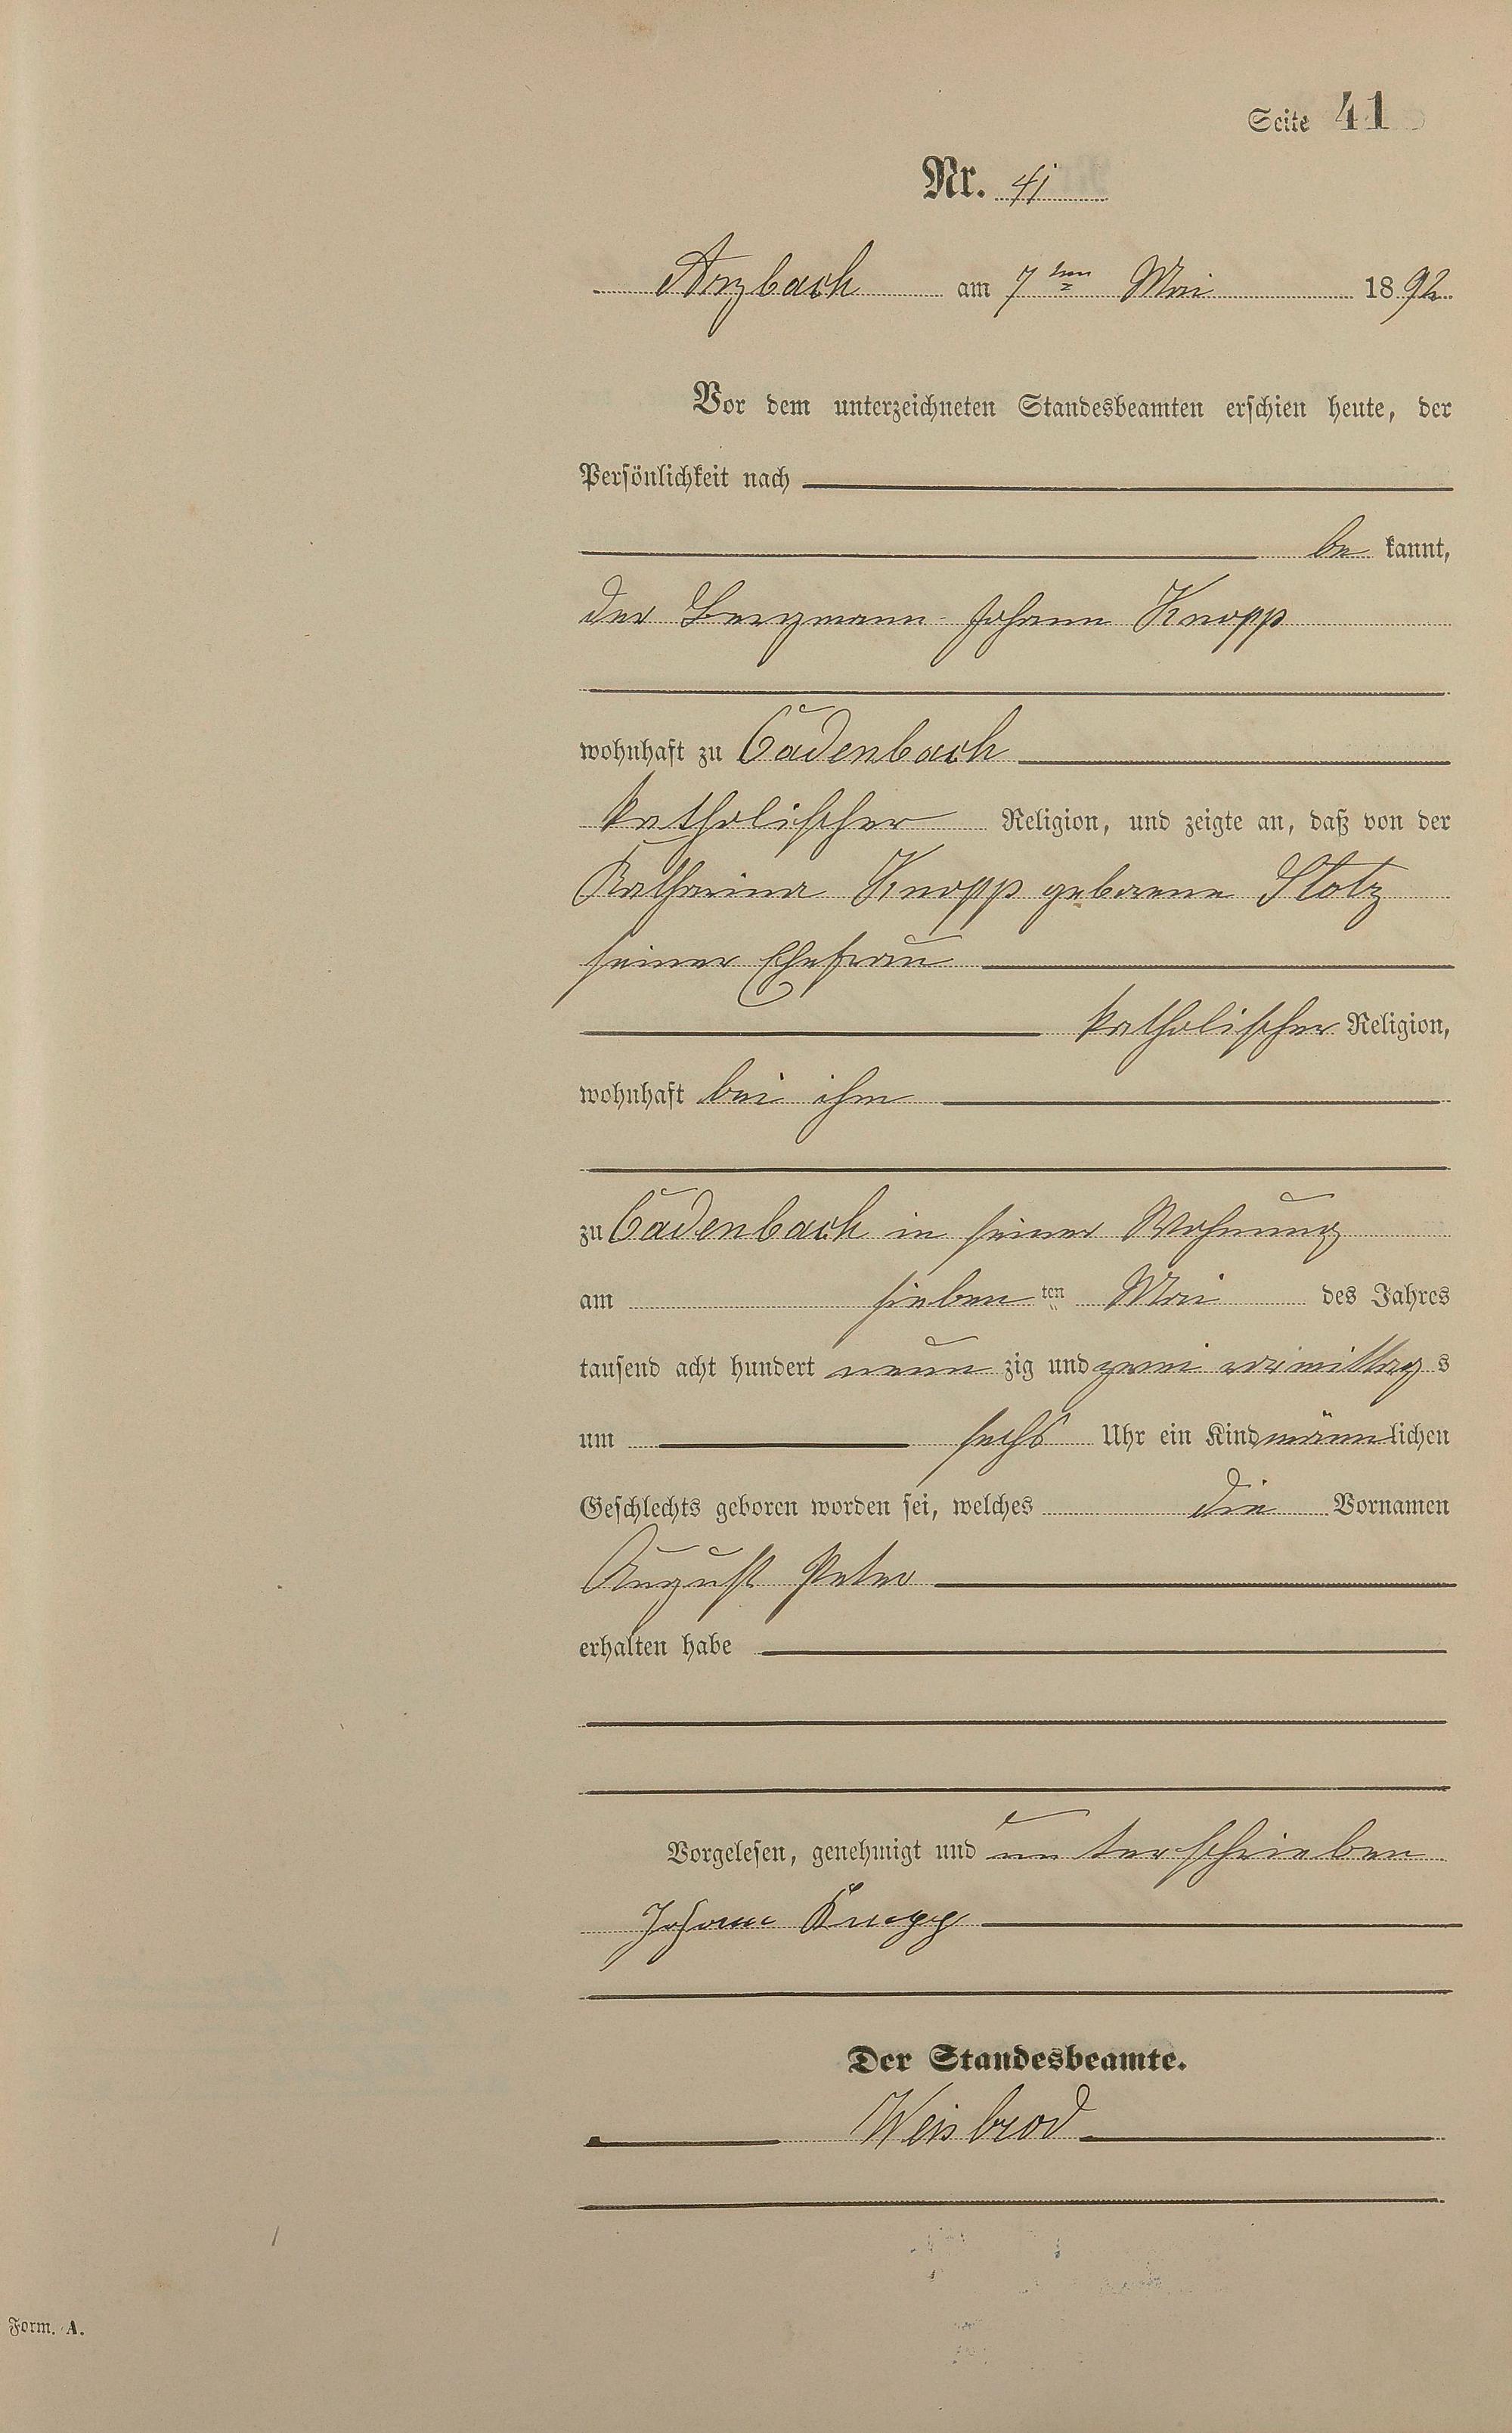 Seite 41
Nr. 41
Arzbach am 7ten Mai 1892
Vor dem unterzeichneten Standesbeamten erschien heute, der
Persönlichkeit nach
be kannt,
der Bergmann Johann Knopp
wohnhaft zu Cadenbach
katholischer Religion, und zeigte an, daß von der
Katharina Knopp geborene Stotz
seiner Ehefrau
katholischer Religion,
wohnhaft bei ihm
zu Cadenbach in seiner Wohnung
am sieben ten Mai des Jahres
tausend acht hundert neun zig und zwei vormittag s
um sechs Uhr ein Kind männlichen
Geschlechts geboren worden sei, welches die Vornamen
August Peter
erhalten habe
Vorgelesen, genehmigt und unterschrieben
Johann Knopp
Der Standesbeamte.
Weisbrod
Form. A.